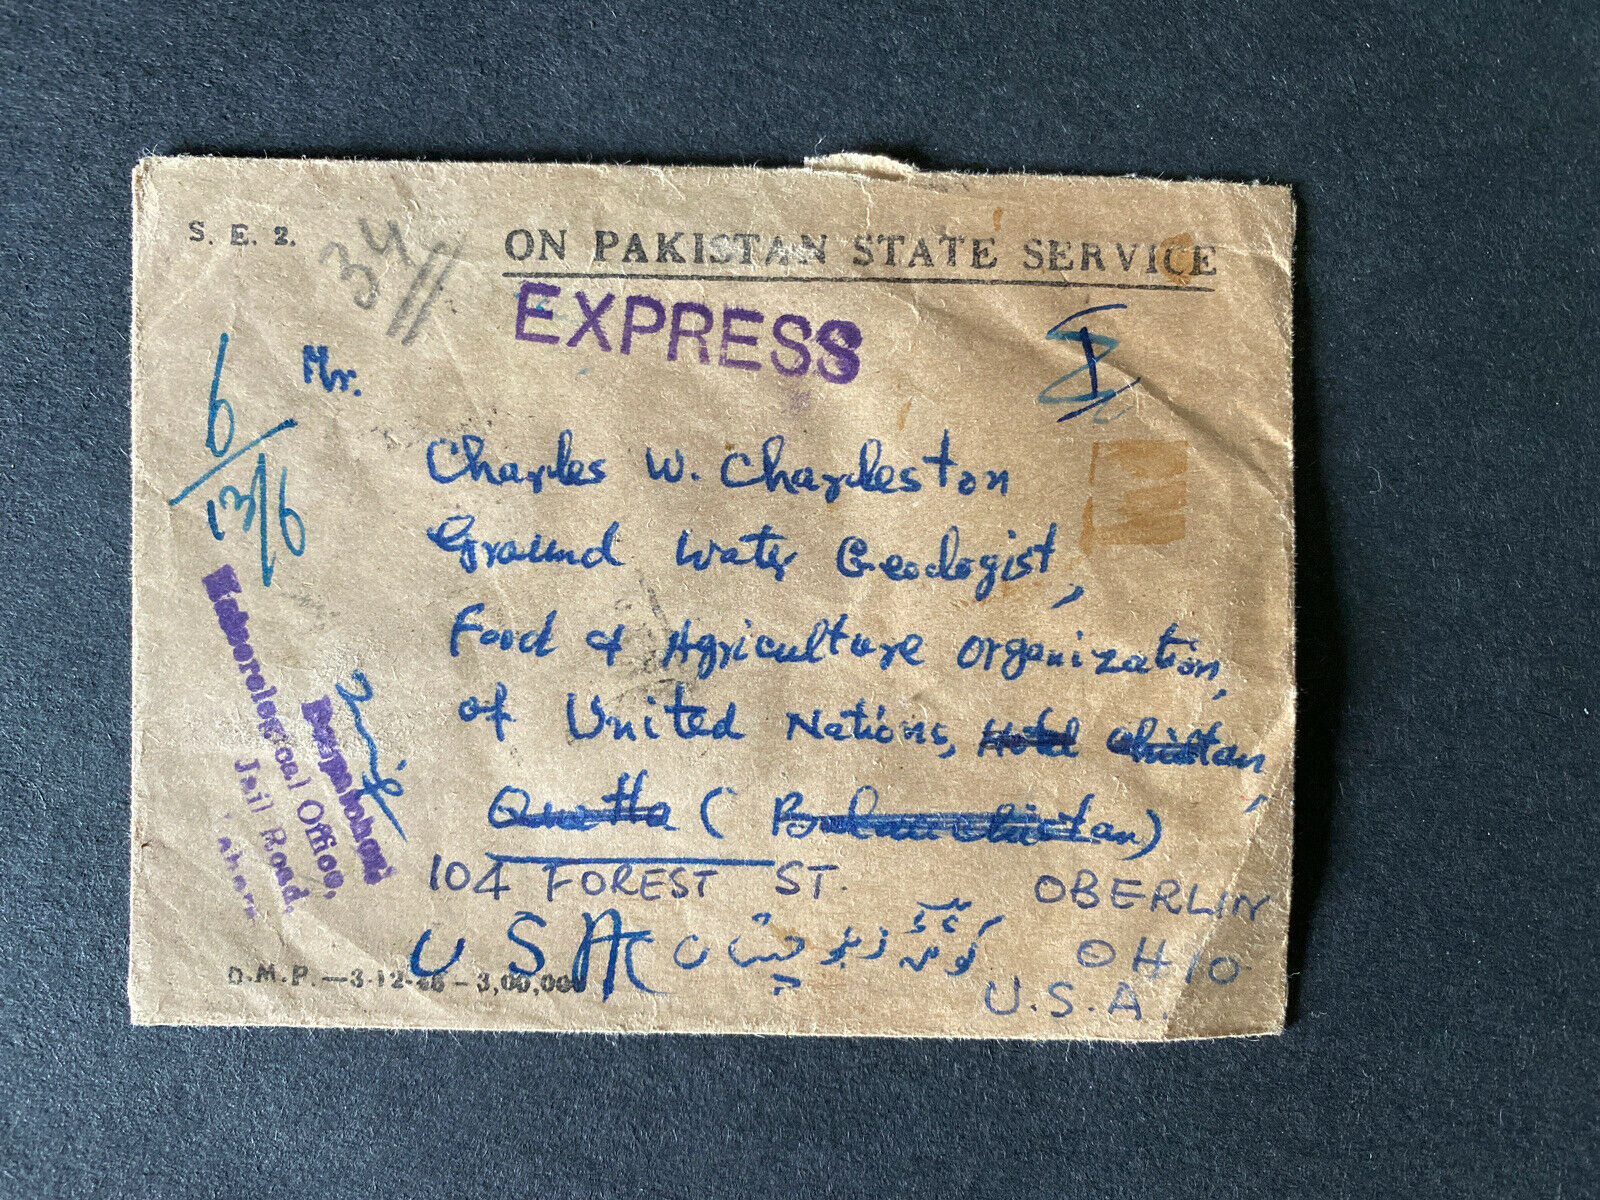 S. E. 2.
34//
ON PAKISTAN STATE SERVICE
EXPRESS
6/13/6
Mr.
Charles W. Charleston
Ground Water Geologist,
Food & Agriculture Organization,
of United Nations, Hotel Chiltan,
Quetta (Baluchistan)
104 FOREST ST. OBERLIN
OHIO
U.S.A.
U S A
Meteorological Office,
Jail Road,
Lahore
D.M.P.—3-12-